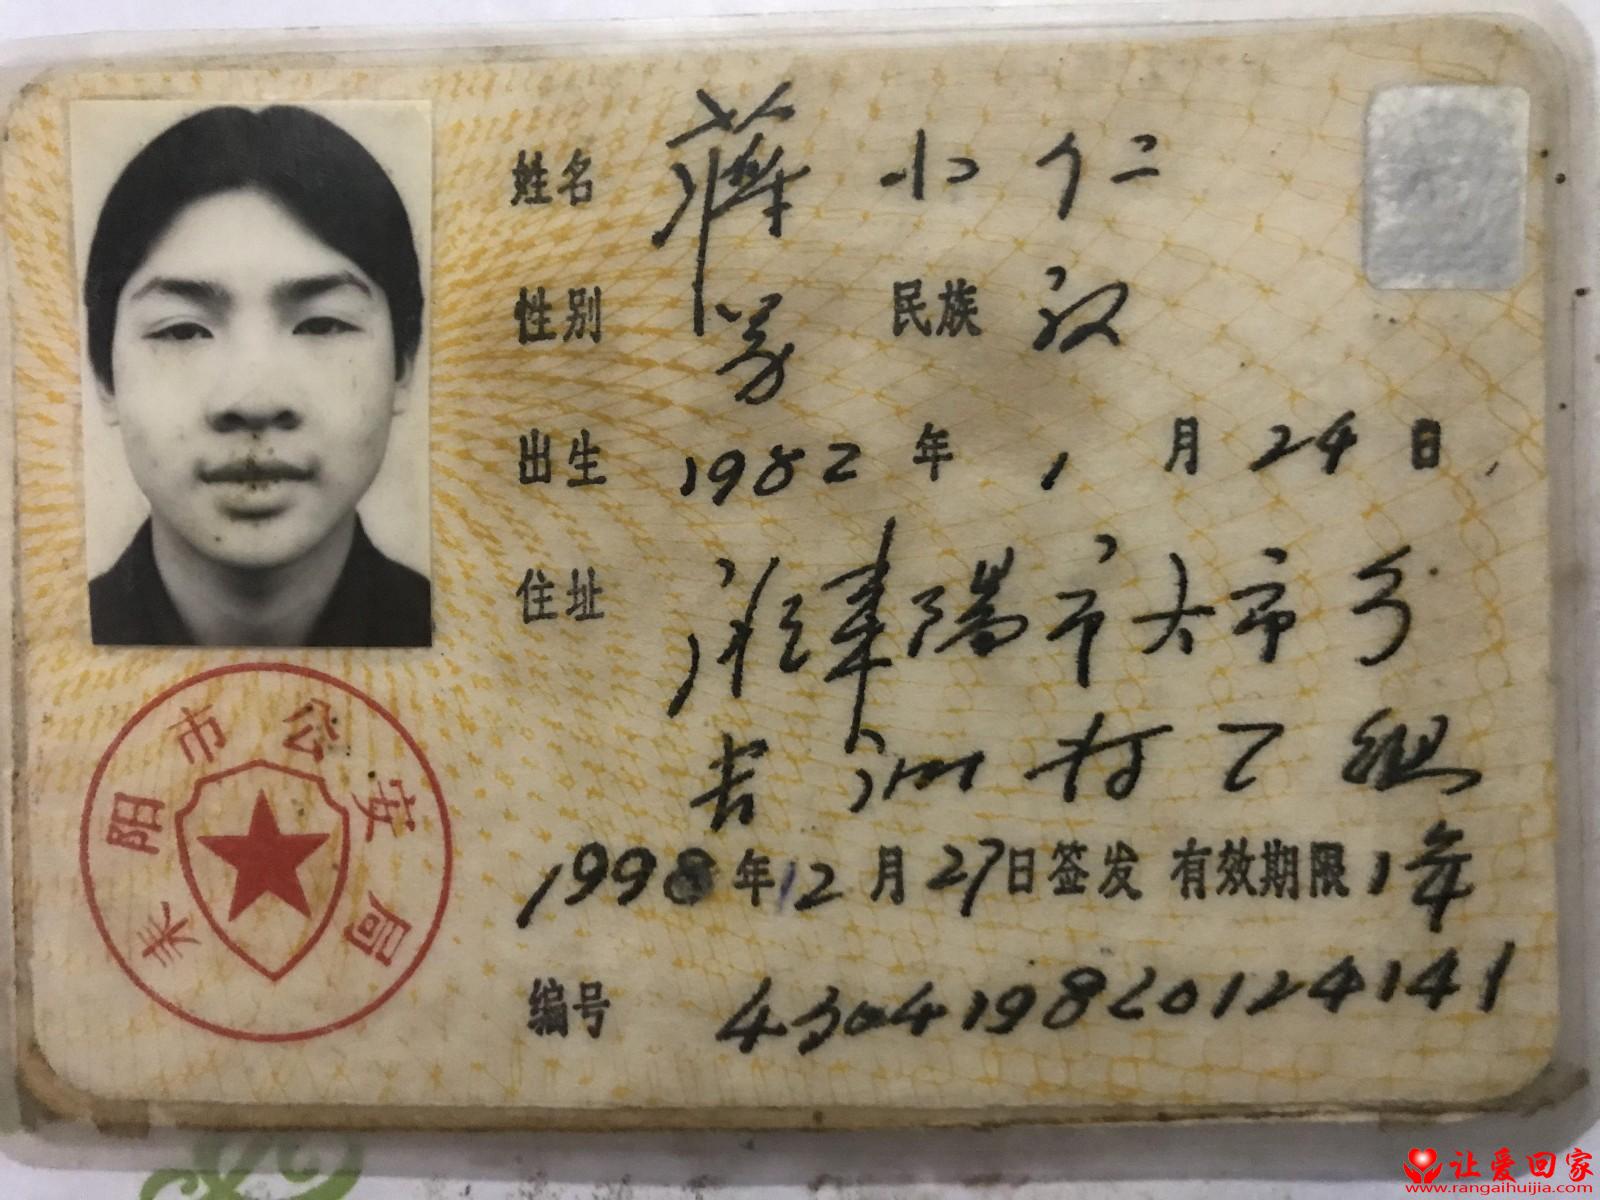 姓名 薛小仁
性别 男 民族 汉
出生 1982年1月24日
住址 耒阳市大市乡
洲村乙组
1998年12月27日签发 有效期限1年
编号 430419820124141
耒阳市公安局
让爱回家
www.rangaihuijia.com